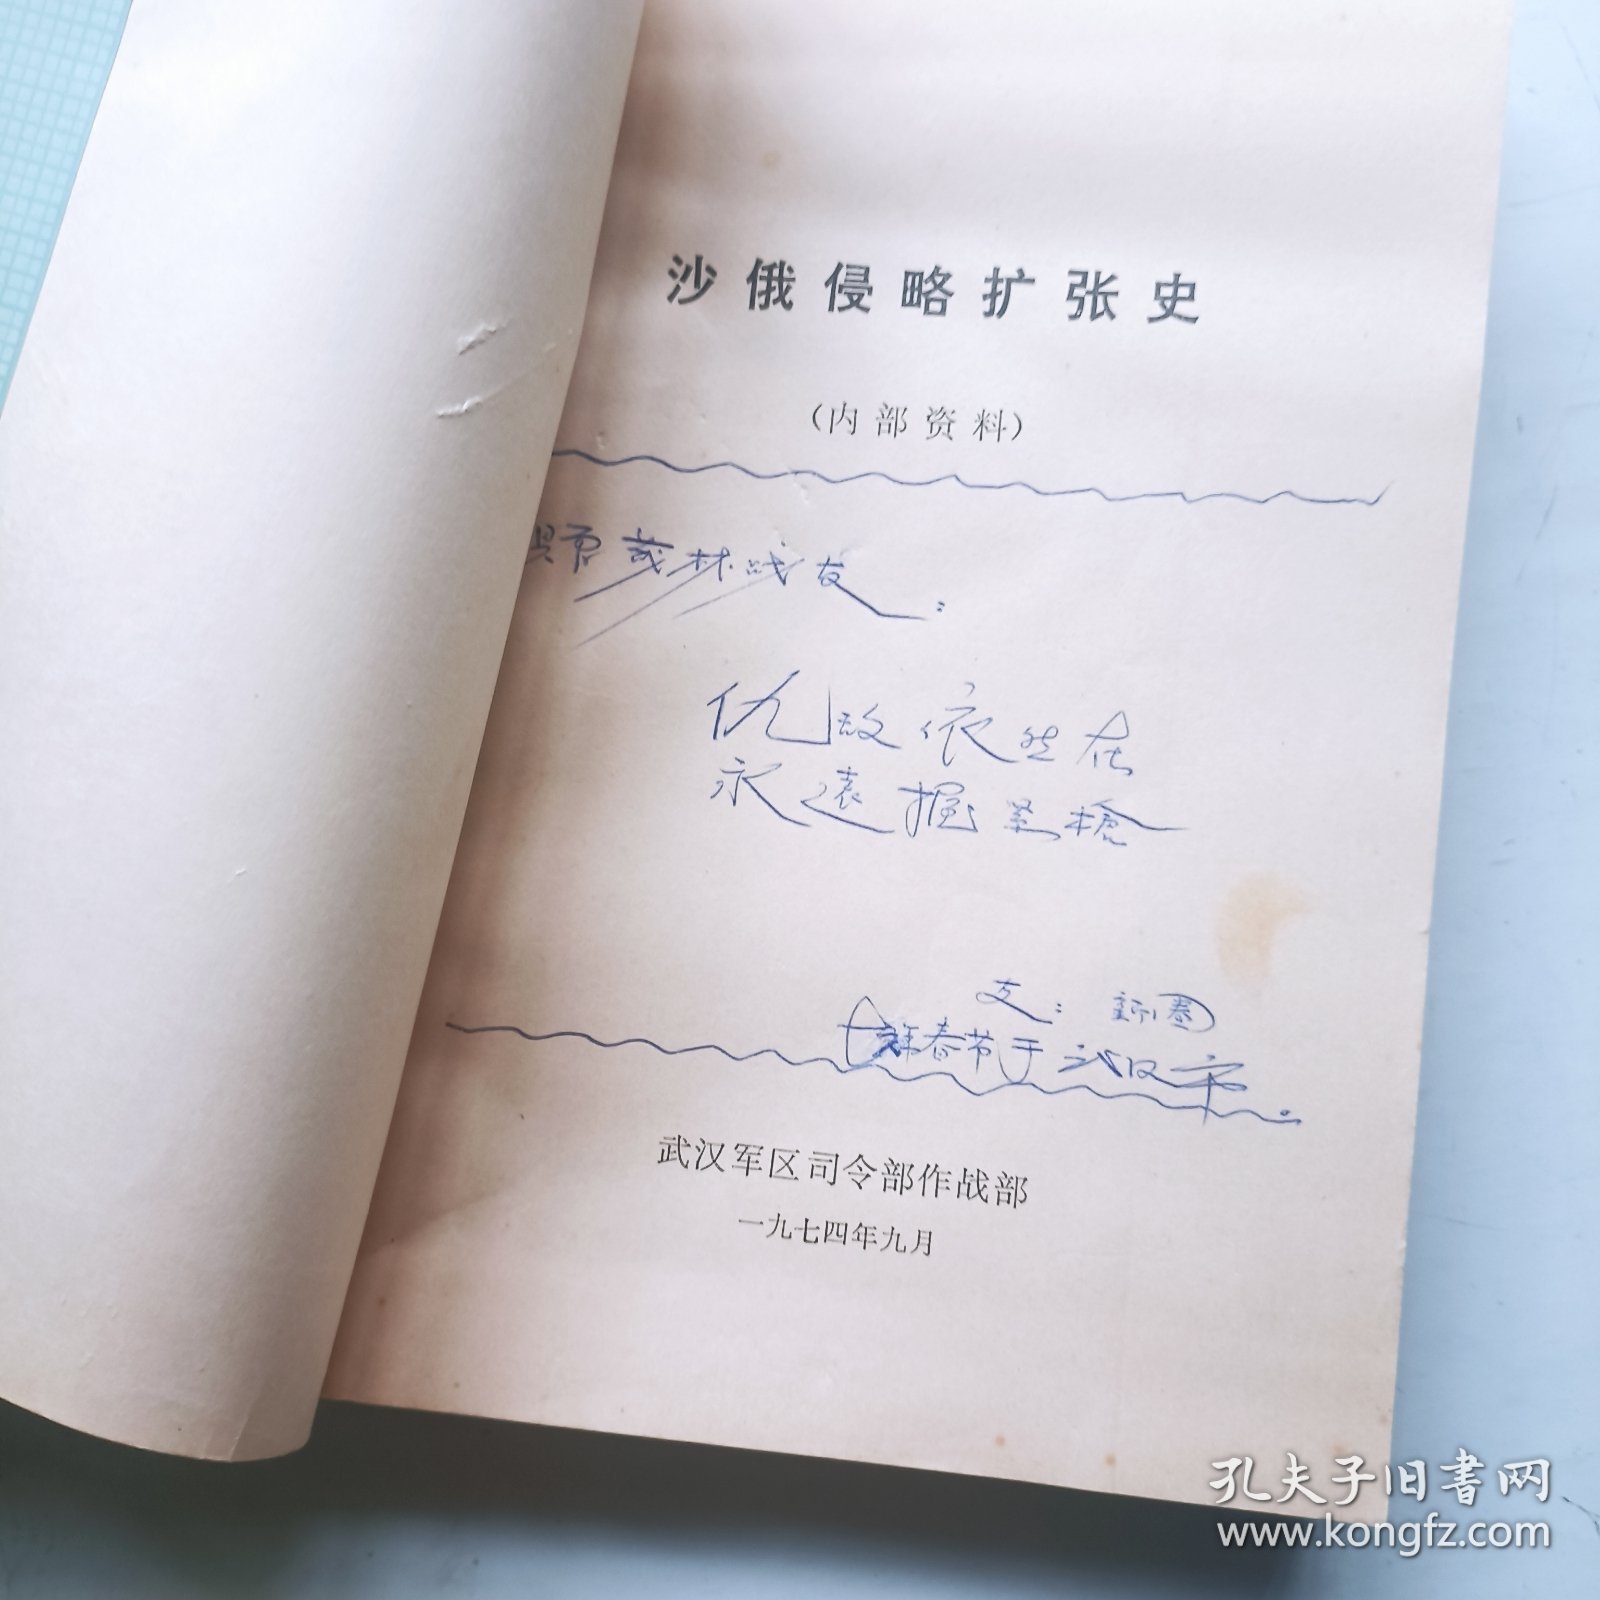 沙俄侵略扩张史
（内部资料）
茂林战友：
仇敌依然在
永远握紧槍
友：新
年春节于武汉市。
武汉军区司令部作战部
一九七四年九月
孔夫子旧书网
www.kongfz.com